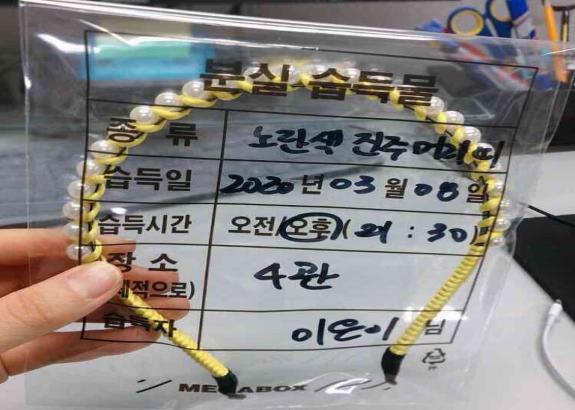 분실·습득물
종 류 노란색 진주머리띠
습득일 2020 년 03 월 08 일
습득시간 오전/오후( 21 : 30 )
장 소 4관
습득자 이은이 님
MEGABOX